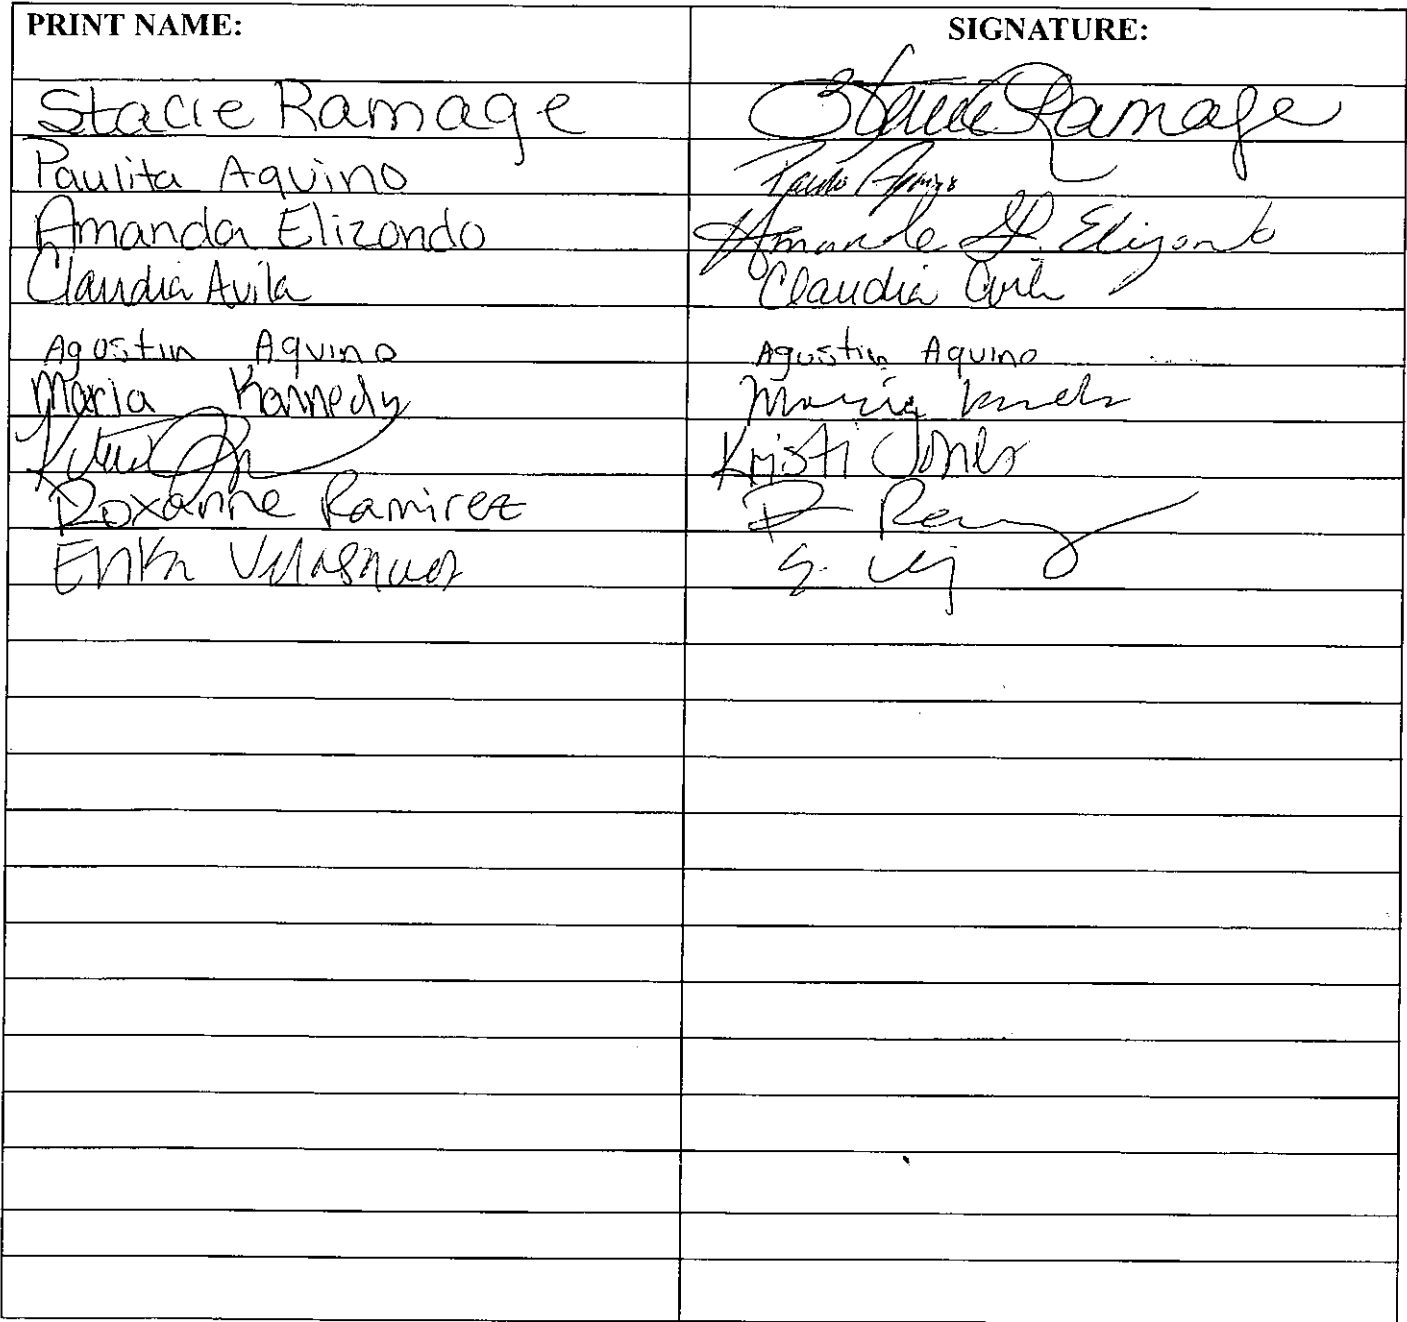 PRINT NAME: SIGNATURE:
Stacie Ramage Stacie Ramage
Paulita Aquino
Amanda Elizondo Amanda Elizondo
Claudia Avila Claudia Avila
Agustin Aquino Agustin Aquino
Maria Kannedy Maria
Kristi Jones
Roxanne Ramirez R
Erika Velasquez